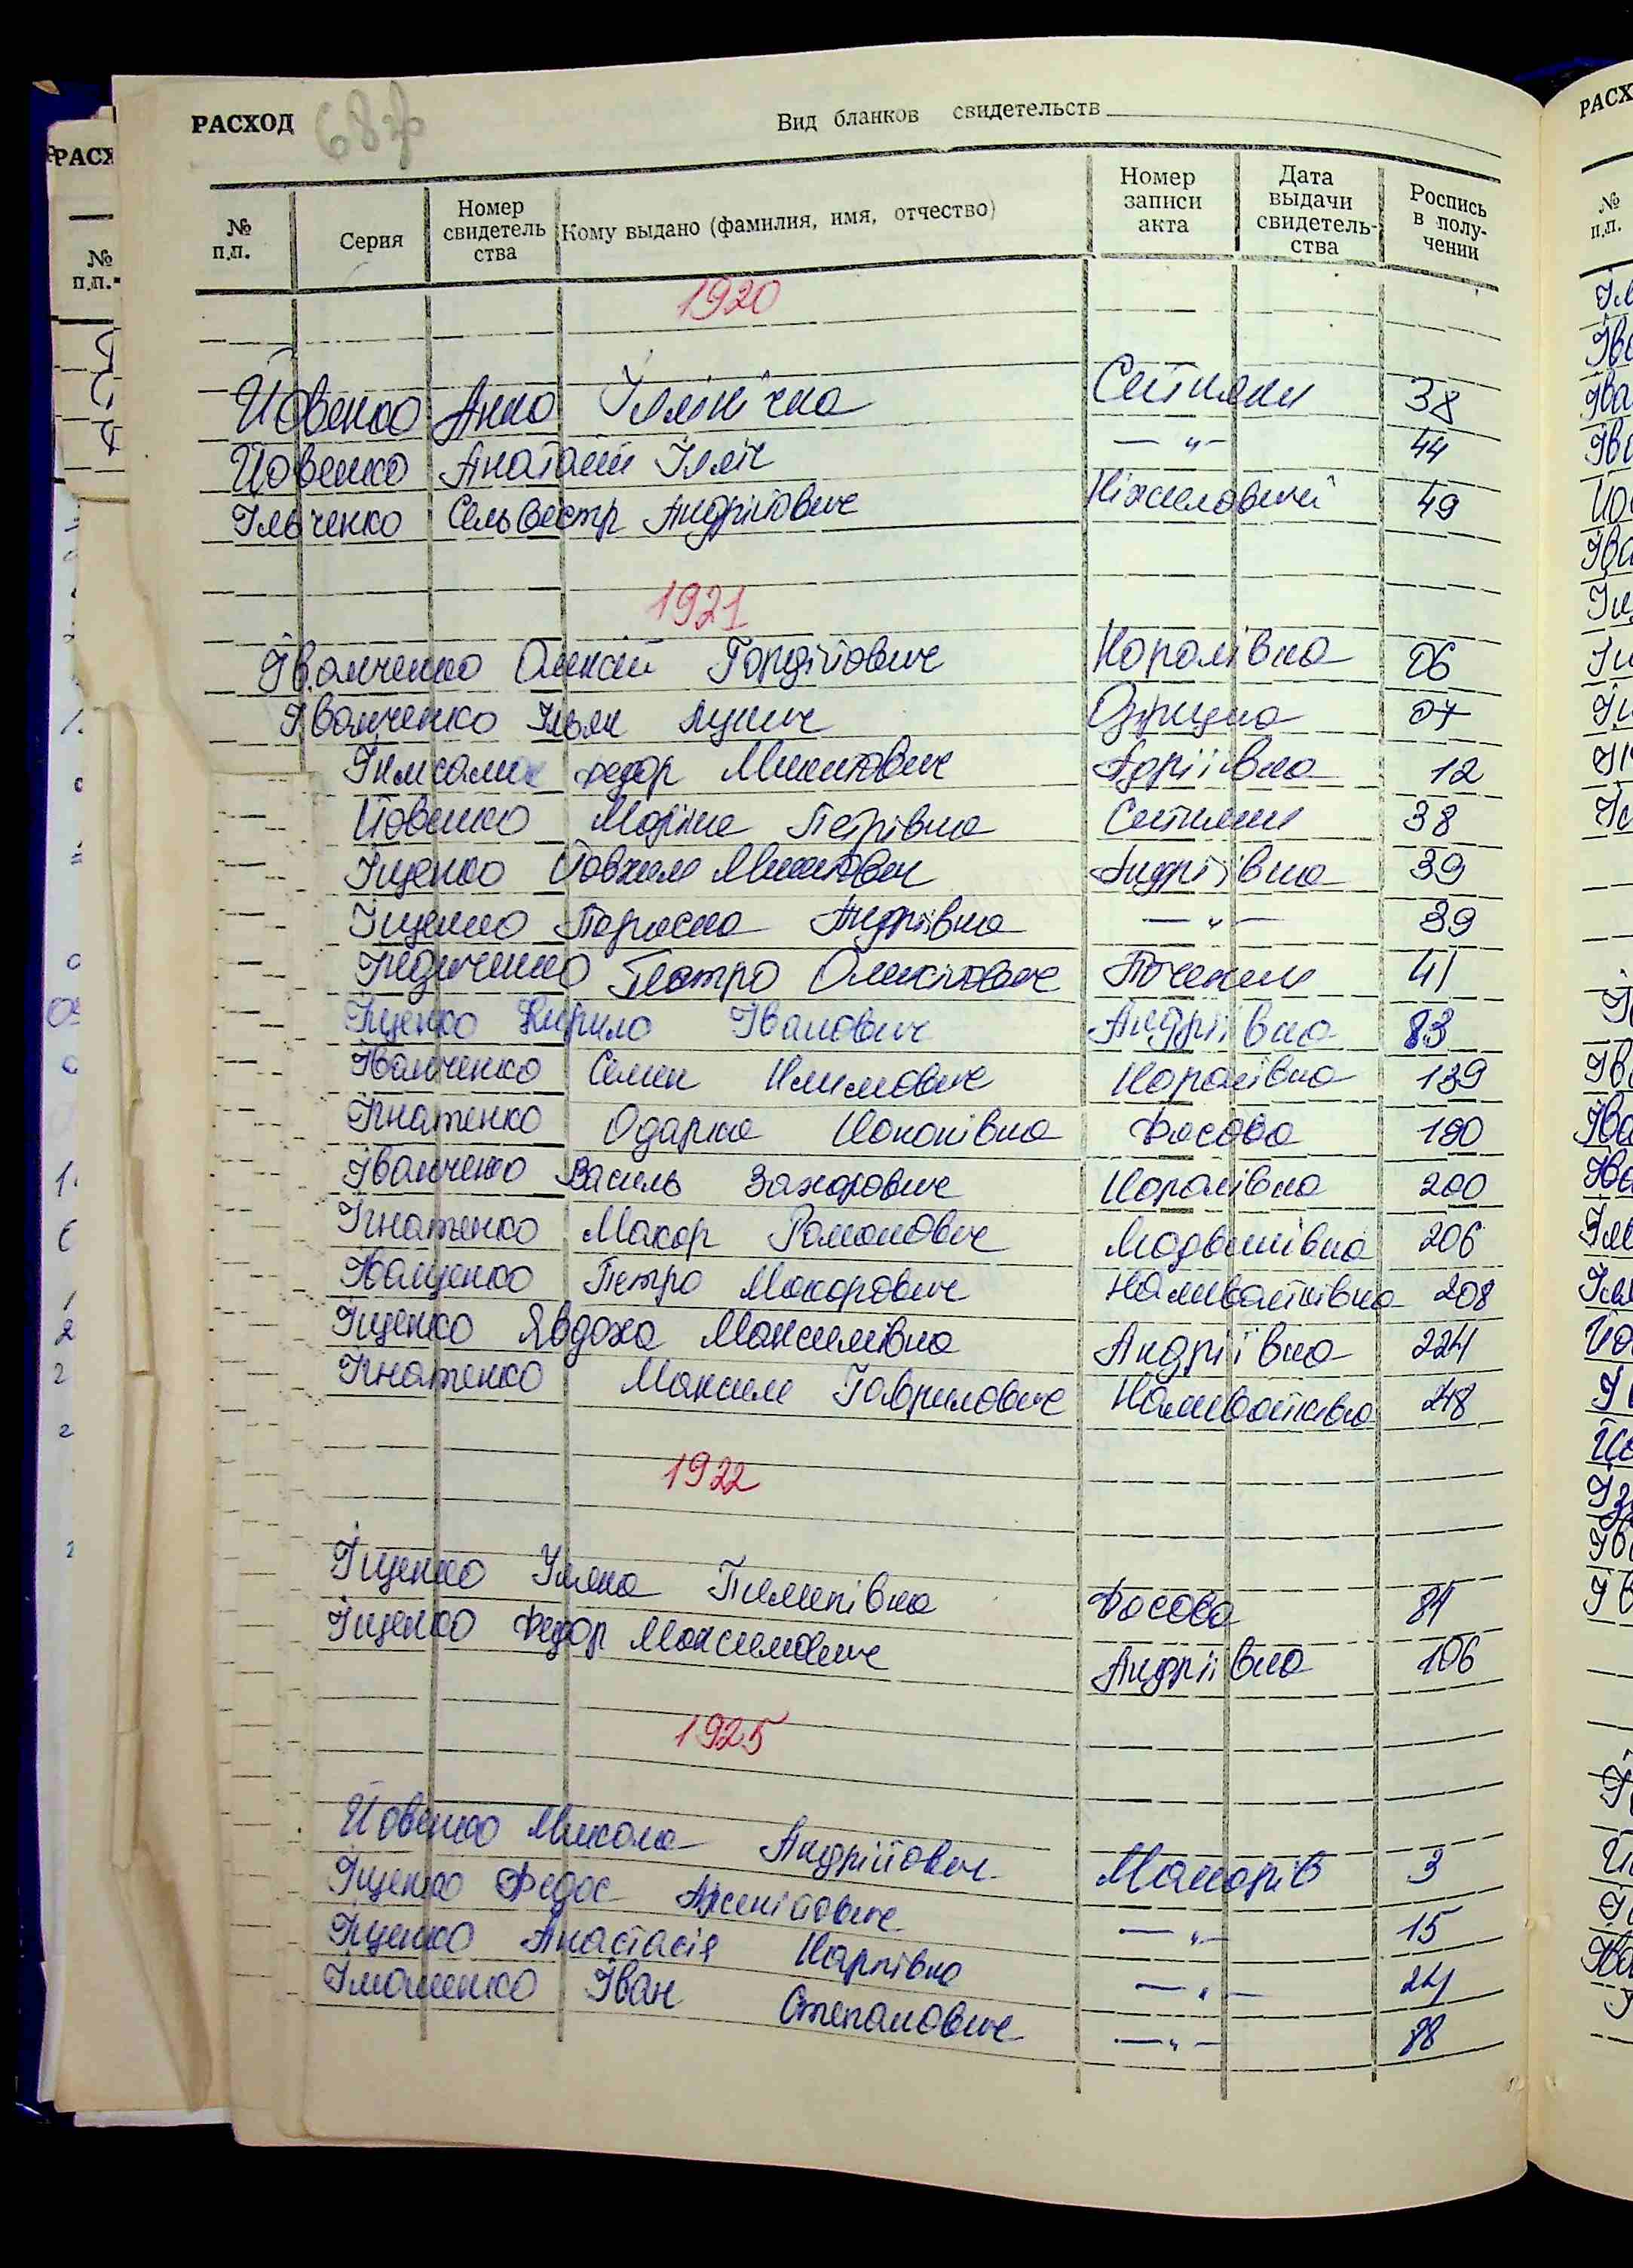 РАСХОД 68зв
Вид бланков свидетельств
№ п.п. Серия Номер свидетель ства Кому выдано (фамилия, имя, отчество) Номер записи акта Дата выдачи свидетель- ства Роспись в полу- чении
1920
Йовенко Анна Іллінічна Ситняки 38
Йовенко Анатолій Ілліч —〃— 44
Ільченко Сельвестр Андрійович Ніжиловичі 49
1921
Іванченко Олексій Гордійович Королівка 06
Іванченко Ільян Лукич Озрщина 07
Федор Микитович Адріївка 12
Йовенко Марина Петрівна Ситняки 38
Іщенко Йовхим Микитович Андріївка 39
Іщенко Параска Андріївна —〃— 39
Петро Олексійович 41
Іщенко Кирило Іванович Андріївка 83
Іванченко Семен Климович Королівка 139
Ігнатенко Одарка Кононівна Фасова 190
Іванченко Василь Захарович Королівка 200
Ігнатенко Макар Романович Людвинівка 206
Іващенко Петро Макарович Наливайківка 208
Іщенко Явдоха Максимівна Андріївка 224
Ігнатенко Максим Гаврилович Наливайківка 248
1922
Іщенко Уляна Пилипівна Фасова 84
Іщенко Федор Максимович Андріївка 106
1925
Йовенко Микола Андрійович Макарів 3
Іщенко Федос Арсенійович —〃— 15
Іщенко Анастасія Карпівна —〃— 24
Іван Степанович —〃— 88